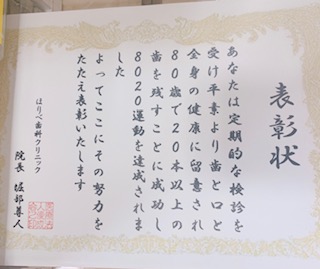 表彰状
あなたは定期的な検診を
受け平素より歯と口と
全身の健康に留意され
80歳で20本以上の
歯を残すことに成功し
8020運動を達成されま
した
よってここにその努力を
たたえ表彰いたします
はりべ歯科クリニック
院長 堀部尊人